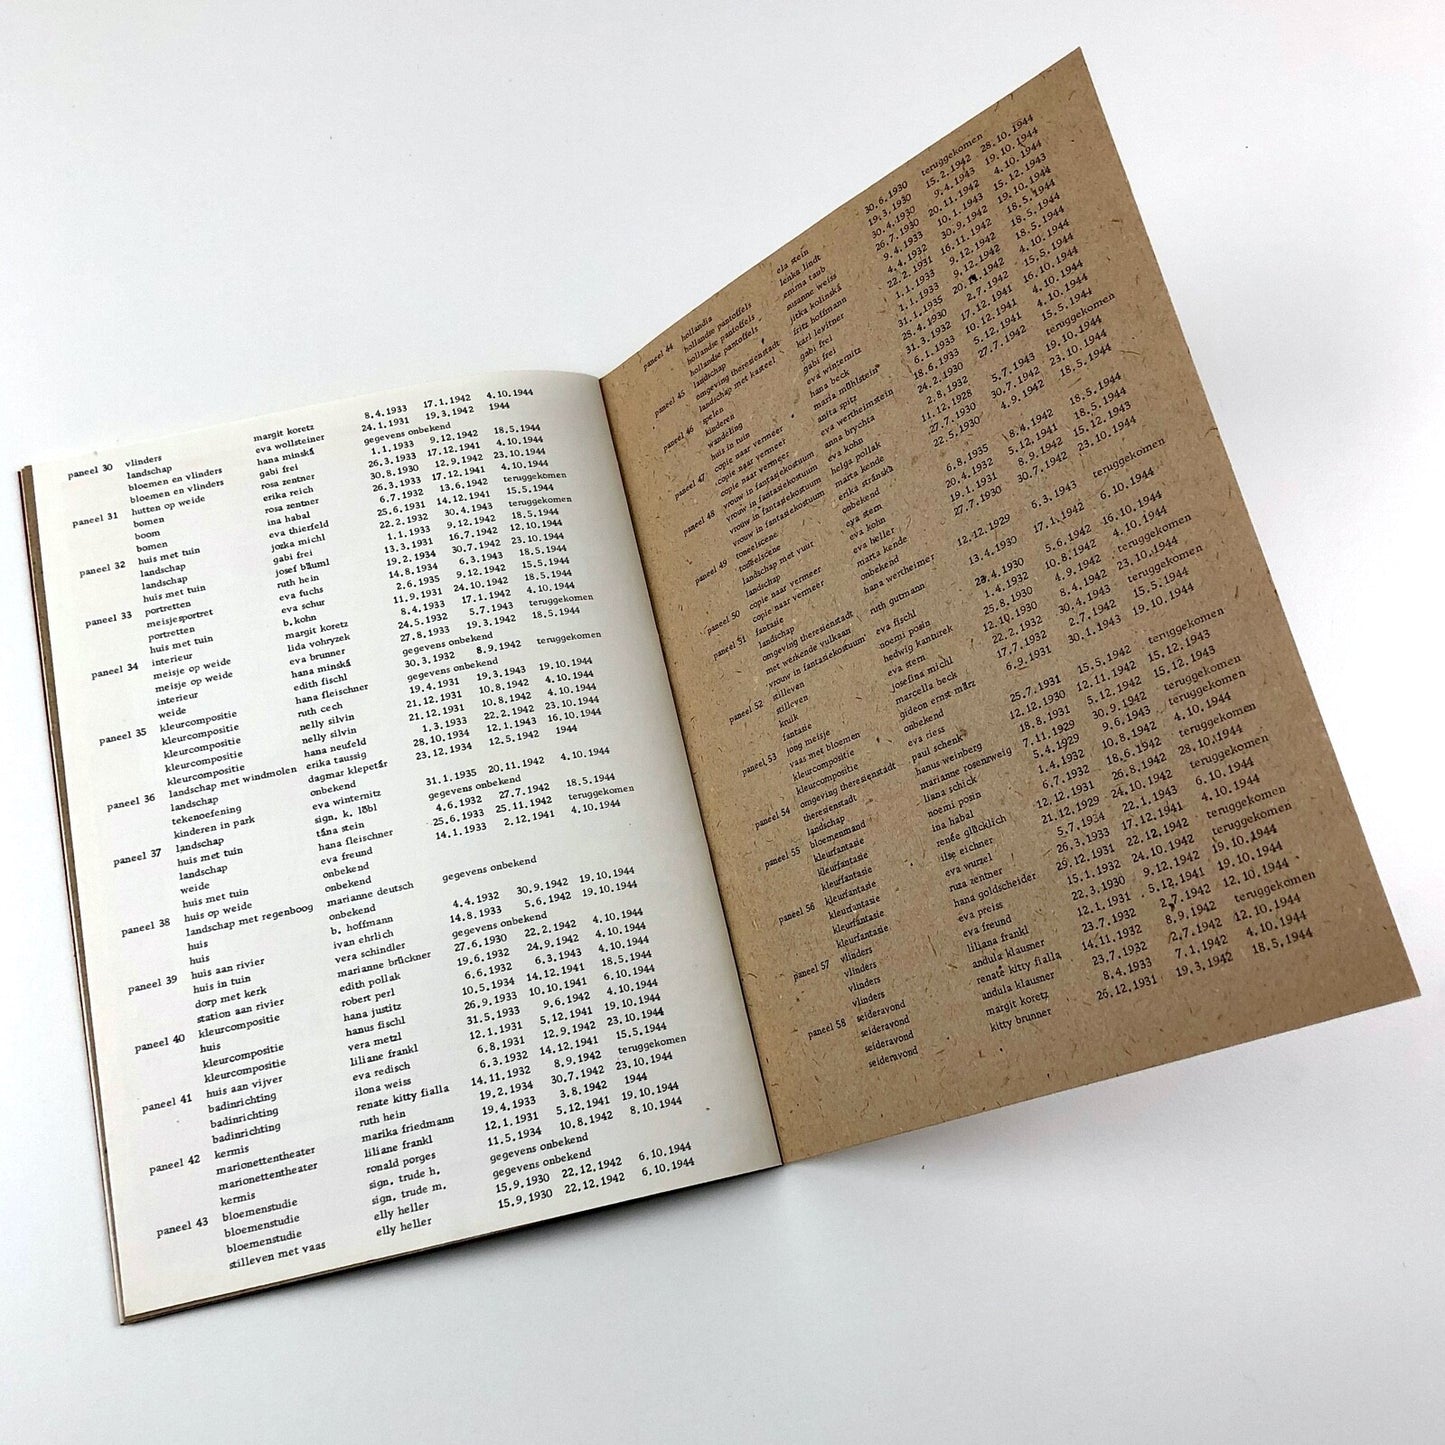 paneel 30 vlinders
landschap
bloemen en vlinders
bloemen en vlinders
paneel 31 hutten op weide
bomen
boom
bomen
paneel 32 huis met tuin
landschap
landschap
huis met tuin
paneel 33 portretten
meisjesportret
portretten
huis met tuin
paneel 34 interieur
meisje op weide
meisje op weide
interieur
weide
paneel 35 kleurcompositie
kleurcompositie
kleurcompositie
kleurcompositie
paneel 36 landschap met windmolen
landschap
tekenoefening
kinderen in park
paneel 37 landschap
huis met tuin
landschap
weide
huis met tuin
paneel 38 huis op weide
landschap met regenboog
huis
huis
paneel 39 huis aan rivier
huis in tuin
dorp met kerk
station aan rivier
paneel 40 kleurcompositie
huis
kleurcompositie
kleurcompositie
paneel 41 huis aan vijver
badinrichting
badinrichting
badinrichting
paneel 42 kermis
marionettentheater
marionettentheater
kermis
paneel 43 bloemenstudie
bloemenstudie
bloemenstudie
stilleven met vaas
margit koretz
eva wollsteiner
hana minská
gabi frei
rosa zentner
erika reich
rosa zentner
ina habal
eva thierfeld
jozka michl
gabi frei
josef bäuml
ruth hein
eva fuchs
eva schur
b.kohn
margit koretz
lida vohryzek
eva brunner
hana minská
edith fischl
hana fleischner
ruth cech
nelly silvin
nelly silvin
hana neufeld
erika taussig
dagmar klepetár
onbekend
eva winternitz
sign. k. löbl
tána stein
hana fleischner
eva freund
onbekend
onbekend
marianne deutsch
onbekend
b. hoffmann
ivan ehrlich
vera schindler
marianne brückner
edith pollak
robert perl
hana justitz
hanus fischl
vera metzl
liliane frankl
eva redisch
ilona weiss
renate kitty fialla
ruth hein
marika friedmann
liliane frankl
ronald porges
sign. trude h.
sign. trude m.
elly heller
elly heller
8.4.1933 17.1.1942 4.10.1944
24.1.1931 19.3.1942 1944
gegevens onbekend
1.1.1933 9.12.1942 18.5.1944
26.3.1933 17.12.1941 4.10.1944
30.8.1930 12.9.1942 23.10.1944
26.3.1933 17.12.1941 4.10.1944
6.7.1932 13.6.1942 teruggekomen
25.6.1931 14.12.1941 15.5.1944
22.2.1932 30.4.1943 teruggekomen
1.1.1933 9.12.1942 18.5.1944
13.3.1931 16.7.1942 12.10.1944
19.2.1934 30.7.1942 23.10.1944
14.8.1934 6.3.1943 18.5.1944
2.6.1935 9.12.1942 15.5.1944
11.9.1931 24.10.1942 18.5.1944
8.4.1933 17.1.1942 4.10.1944
24.5.1932 5.7.1943 teruggekomen
27.8.1933 19.3.1942 18.5.1944
gegevens onbekend
30.3.1932 8.9.1942 teruggekomen
gegevens onbekend
19.4.1931 19.3.1943 19.10.1944
21.12.1931 10.8.1942 4.10.1944
21.12.1931 10.8.1942 4.10.1944
1.3.1933 22.2.1942 23.10.1944
28.10.1934 12.1.1943 16.10.1944
23.12.1934 12.5.1942 1944
31.1.1935 20.11.1942 4.10.1944
gegevens onbekend
4.6.1932 27.7.1942 18.5.1944
25.6.1933 25.11.1942 teruggekomen
14.1.1933 2.12.1941 4.10.1944
gegevens onbekend
4.4.1932 30.9.1942 19.10.1944
14.8.1933 5.6.1942 19.10.1944
gegevens onbekend
27.6.1930 22.2.1942 4.10.1944
19.6.1932 24.9.1942 4.10.1944
6.6.1932 6.3.1943 4.10.1944
10.5.1934 14.12.1941 18.5.1944
26.9.1933 10.10.1941 6.10.1944
31.5.1933 9.6.1942 4.10.1944
12.1.1931 5.12.1941 19.10.1944
6.8.1931 12.9.1942 23.10.1944
6.3.1932 14.12.1941 15.5.1944
14.11.1932 8.9.1942 teruggekomen
19.2.1934 30.7.1942 23.10.1944
19.4.1933 3.8.1942 1944
12.1.1931 5.12.1941 19.10.1944
11.5.1934 10.8.1942 8.10.1944
gegevens onbekend
gegevens onbekend
15.9.1930 22.12.1942 6.10.1944
15.9.1930 22.12.1942 6.10.1944
paneel 44 hollandia
hollandse pantoffels
hollandse pantoffels
hollandse pantoffels
paneel 45 landschap
omgeving theresienstadt
landschap met kasteel
paneel 46 spelen
kinderen
wandeling
huis in tuin
paneel 47 copie naar vermeer
copie naar vermeer
copie naar vermeer
paneel 48 vrouw in fantasiekostuum
vrouw in fantasiekostuum
vrouw in fantasiekostuum
vrouw in fantasiekostuum
paneel 49 toneelscene
toffelscène
landschap met vuur
landschap
paneel 50 copie naar vermeer
copie naar vermeer
fantasie
paneel 51 landschap
omgeving theresienstadt
met werkende vulkaan
vrouw in fantasiekostuum
paneel 52 stilleven
stilleven
kruik
fantasie
paneel 53 jong meisje
vaas met bloemen
kleurcompositie
kleurcompositie
paneel 54 omgeving theresienstadt
theresienstadt
landschap
paneel 55 bloemenmand
kleurfantasie
kleurfantasie
kleurfantasie
paneel 56 kleurfantasie
kleurfantasie
kleurfantasie
kleurfantasie
paneel 57 vlinders
vlinders
vlinders
vlinders
paneel 58 seideravond
seideravond
seideravond
seideravond
ela stein
lenka lindt
emma taub
susanne weiss
jitka kolinská
fritz hoffmann
karl levitner
gabi frei
gabi frei
eva winternitz
hana beck
maria mühlstein
anita spitz
eva wertheimstein
anna brychta
eva kohn
helga pollak
marta kende
erika stránská
onbekend
eva stern
eva kohn
eva heller
marta kende
onbekend
hana wertheimer
ruth gutmann
eva fischl
noemi posin
hedwig kanturek
eva stern
josefina michl
marcella beck
gideon ernst märz
onbekend
eva riess
paul schenk
hanus weinberg
marianne rosenzweig
liana schick
noemi posin
ina habal
renée glücklich
ilse eichner
eva wurzel
ruza zentner
hana goldscheider
eva preiss
eva freund
liliana frankl
andula klausner
renate kitty fialla
andula klausner
margit koretz
kitty brunner
30.6.1930 teruggekomen
19.3.1930 15.2.1942 28.10.1944
30.4.1930 9.4.1943 19.10.1944
26.7.1930 20.11.1942 4.10.1944
9.4.1933 10.1.1943 15.12.1943
4.4.1932 30.9.1942 19.10.1944
22.2.1931 16.11.1942 18.5.1944
1.1.1933 9.12.1942 18.5.1944
1.1.1933 9.12.1942 18.5.1944
31.1.1935 20.11.1942 4.10.1944
28.4.1930 2.7.1942 15.5.1944
31.3.1932 17.12.1941 16.10.1944
6.1.1933 10.12.1941 4.10.1944
18.6.1933 5.12.1941 4.10.1944
24.2.1930 27.7.1942 15.5.1944
2.8.1932 teruggekomen
11.12.1928 5.7.1943 19.10.1944
27.7.1930 30.7.1942 23.10.1944
22.5.1930 4.9.1942 18.5.1944
6.8.1935 8.4.1942 18.5.1944
20.4.1932 5.12.1941 18.5.1944
19.1.1931 8.9.1942 15.12.1943
27.7.1930 30.7.1942 23.10.1944
12.12.1929 6.3.1943 teruggekomen
13.4.1930 17.1.1942 6.10.1944
5.6.1942 16.10.1944
1.4.1932 10.8.1942 4.10.1944
25.8.1930 4.9.1942 teruggekomen
12.10.1930 8.4.1942 23.10.1944
22.2.1932 30.4.1943 teruggekomen
17.7.1932 2.7.1942 15.5.1944
6.9.1931 30.1.1943 19.10.1944
25.7.1931 15.5.1942 teruggekomen
12.12.1930 12.11.1942 15.12.1943
18.8.1931 5.12.1942 15.12.1943
7.11.1929 30.9.1942 teruggekomen
5.4.1929 9.6.1943 teruggekomen
1.4.1932 10.8.1942 4.10.1944
6.7.1932 18.6.1942 teruggekomen
12.12.1931 26.8.1942 28.10.1944
21.12.1929 24.10.1942 teruggekomen
5.7.1934 22.1.1943 6.10.1944
26.3.1933 17.12.1941 4.10.1944
29.12.1931 22.12.1942 teruggekomen
15.1.1932 24.10.1942 teruggekomen
22.3.1930 9.12.1942 19.10.1944
12.1.1931 5.12.1941 19.10.1944
23.7.1932 2.7.1942 12.10.1944
14.11.1932 8.9.1942 teruggekomen
23.7.1932 2.7.1942 12.10.1944
8.4.1933 7.1.1942 4.10.1944
26.12.1931 19.3.1942 18.5.1944